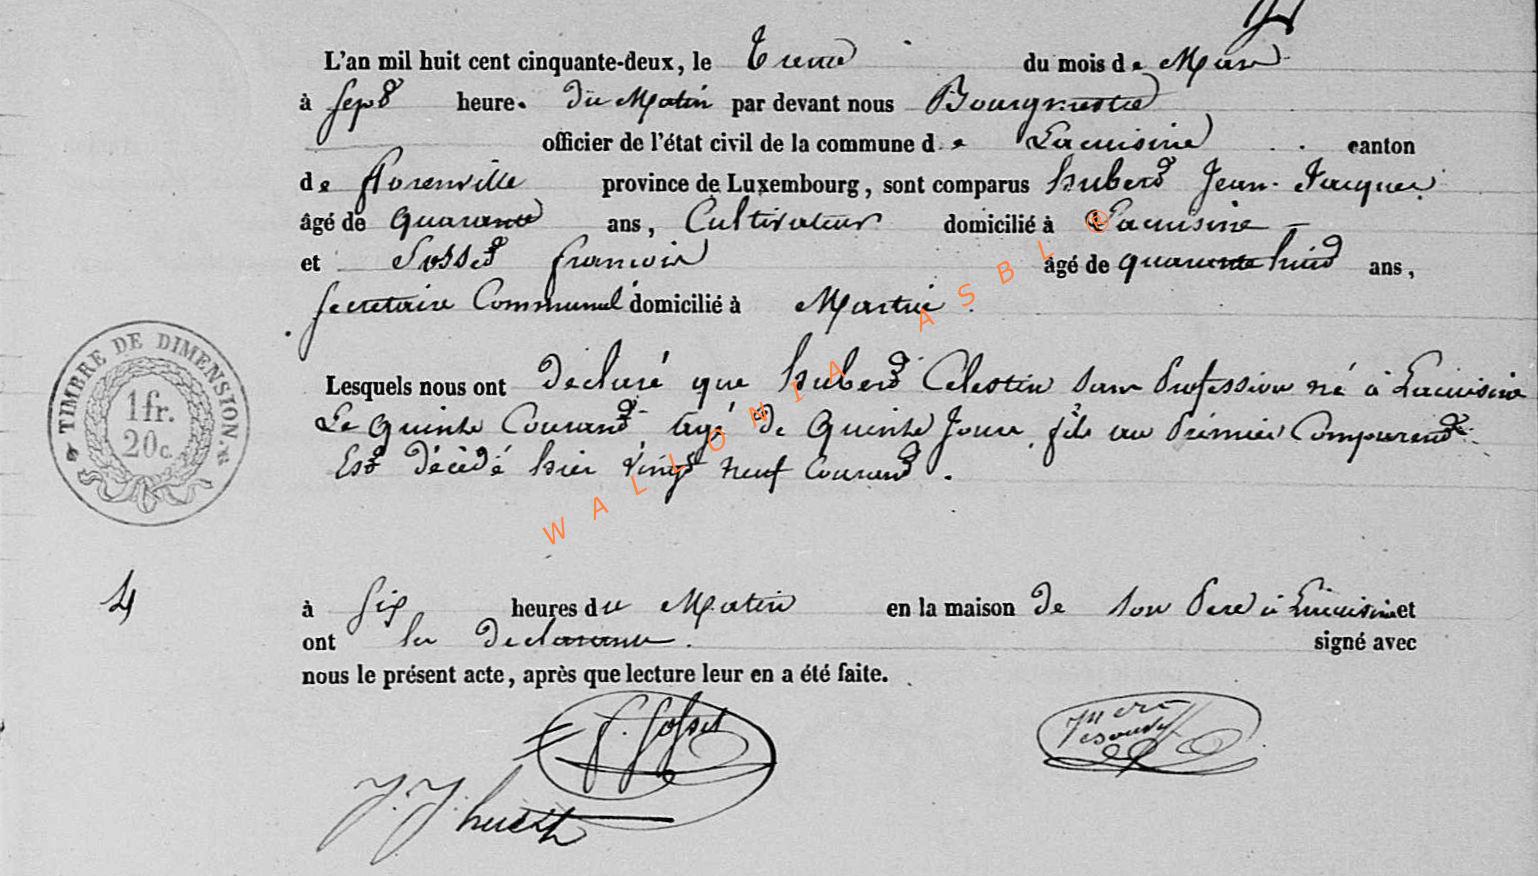 L'an mil huit cent cinquante-deux, le Trente du mois de Mars
à Sept heures du Matin par devant nous Bourgmestre
officier de l'état civil de la commune de Lacuisine canton
de florenville province de Luxembourg, sont comparus hubert Jean Jacques
âgé de quarante ans, Cultivateur domicilié à Lacuisine
et Gosset françois âgé de quarante huit ans,
secretaire Communal domicilié à Martué
TIMBRE DE DIMENSION.
1 fr.
20 c.
Lesquels nous ont declaré que hubert Celestin sans Profession né à Lacuisine
Le quinze Courant agé de quinze Jours, fils au Prémier Comparant
Est décédé hier vingt neuf Courant.
4
à six heures du Matin en la maison de son Pere à Lacuisine et
ont les declarants signé avec
nous le présent acte, après que lecture leur en a été faite.
f. Gosset
J. J. hubert
WALLONIA ASBL ©